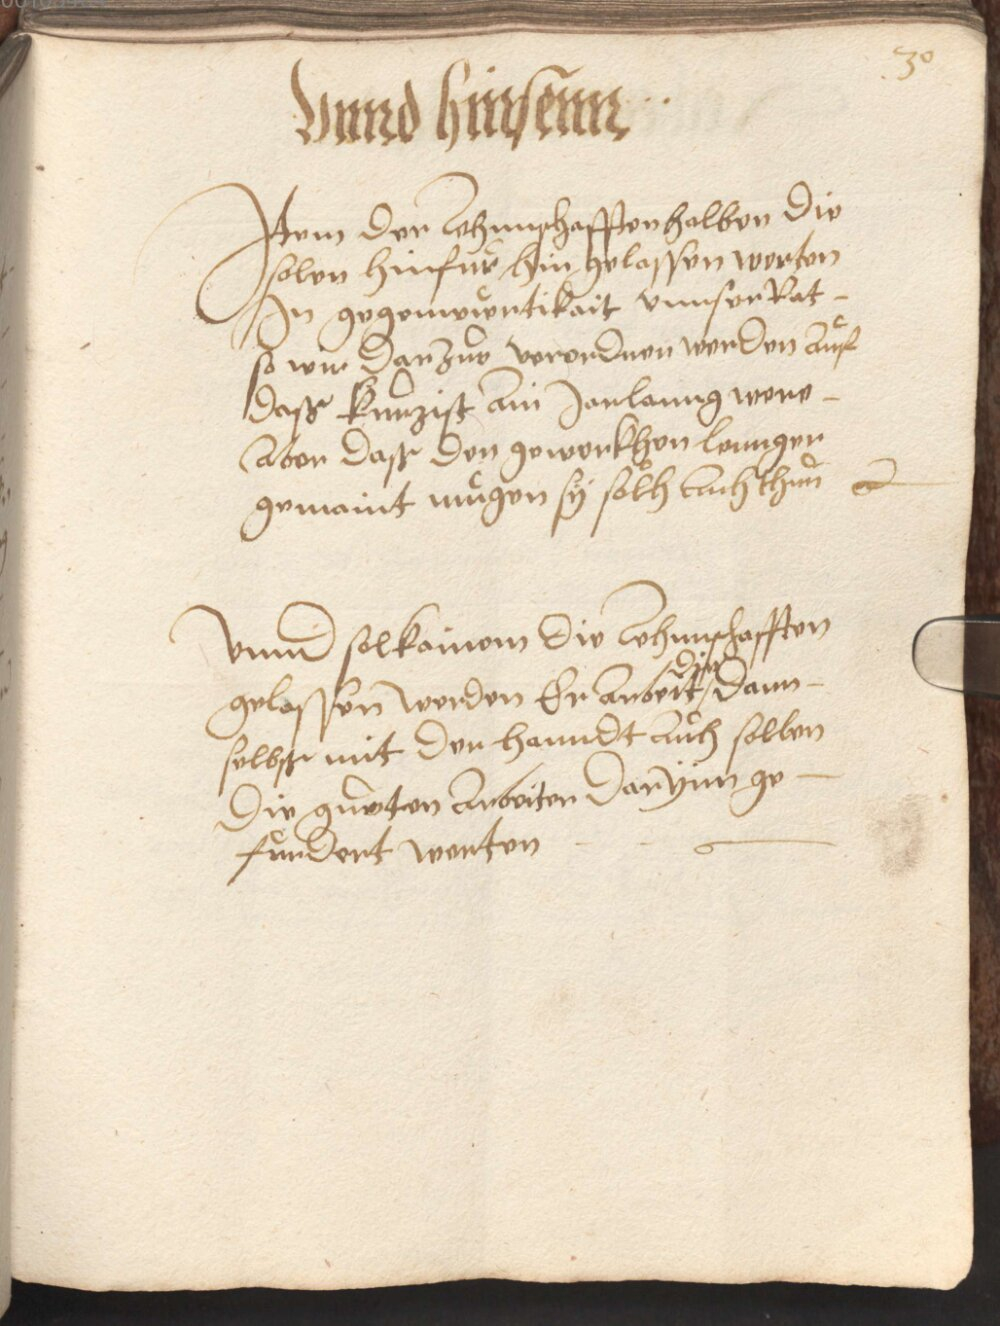 30
Vnnd hinsenn
Item der Lehnnschafften halben die
solen hinfur hin gelassen werten
In gegenwürtikait vnnser Rat -
so wir darzuo verordnen werden auf
dass kurzist ain Jarlanng were -
Aber dass den gewerkhen lennger
gemaint mugen sy sölh auch thun
Vnnd sol kainem die Lehnnschafften
gelassen werden Er arbeit die dann -
selbss mit der hanndt auch sollen
die gueten arbeiter darynn ge -
fürdert werten